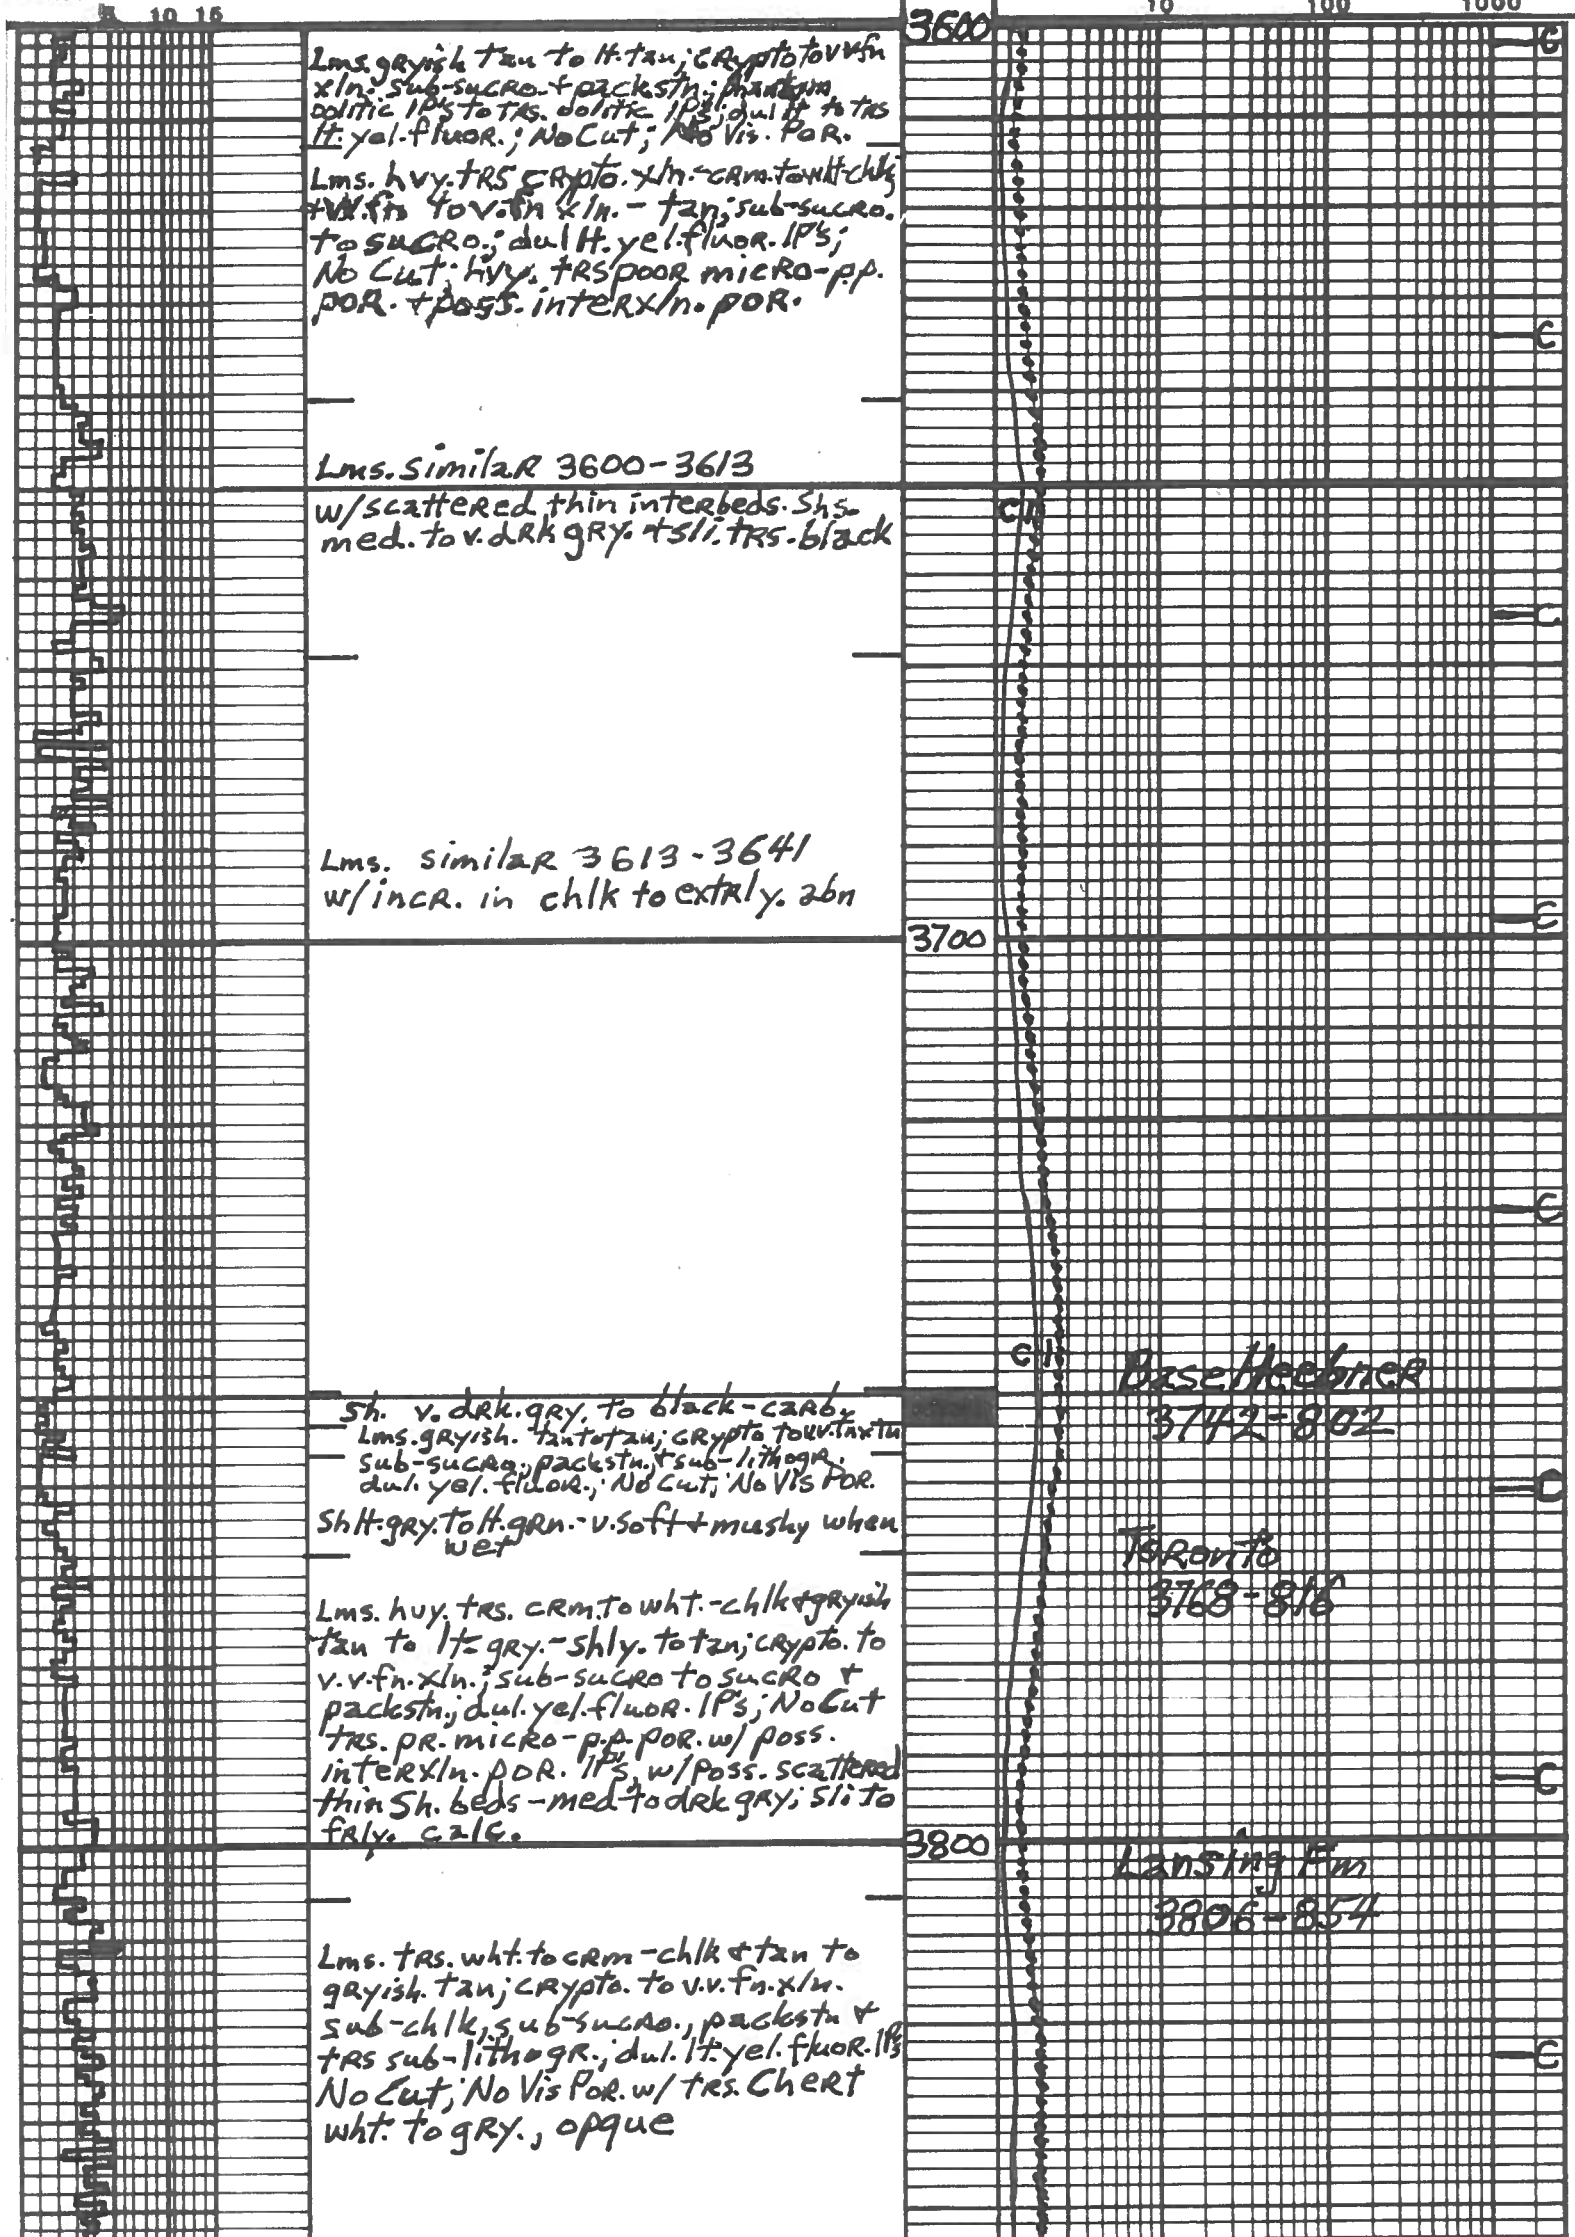 10 15
10 100 1000
3600
Lms. gryish tan to lt. tan; crypto to v v fn
xln; sub-sucro. + packstn; phantom
oolitic IP's to trs. oolitic IP's; dul lt to trs
lt. yel. fluor.; No Cut; No Vis. Por.
C
Lms. hvy. trs crypto. xln. - crm. to wht - chlk
+ vv. fn to v. fn xln. - tan; sub-sucro.
to sucro.; dul lt. yel. fluor. IP's;
No Cut; hvy. trs poor micro-p.p.
por. + poss. interxln. por.
C
Lms. similar 3600-3613
w/scattered thin interbeds. Shs-
med. to v. drk gry. + sli. trs. black
C
C
Lms. similar 3613-3641
w/incr. in chlk to extrly. abn
C
3700
C
C
Base Heebner
3742-802
Sh. v. drk. gry. to black - carb.
Lms. gryish. tan to tan; crypto to vv. fn xln
sub-sucro., packstn, + sub-lithogr.
dul. yel. fluor.; No Cut; No Vis Por.
C
Sh lt. gry. to lt. grn. - v. soft + mushy when
wet
Toronto
3768-816
Lms. hvy. trs. crm. to wht. - chlk + gryish
tan to lt gry. - shly. to tan; crypto. to
v.v. fn. xln.; sub-sucro to sucro +
packstn; dul. yel. fluor. IP's; No Cut
trs. pr. micro-p.p. por. w/ poss.
interxln. por. IP's, w/ Poss. scattered
thin Sh. beds - med to drk gry; sli to
frly. calc.
C
3800
Lansing Fm
3806-854
Lms. trs. wht. to crm - chlk + tan to
gryish. tan; crypto. to v.v. fn. xln.
sub-chlk, sub-sucro., packstn +
trs sub-lithogr.; dul. lt. yel. fluor. IP's
No Cut; No Vis Por. w/ trs. Chert
wht. to gry., opque
C